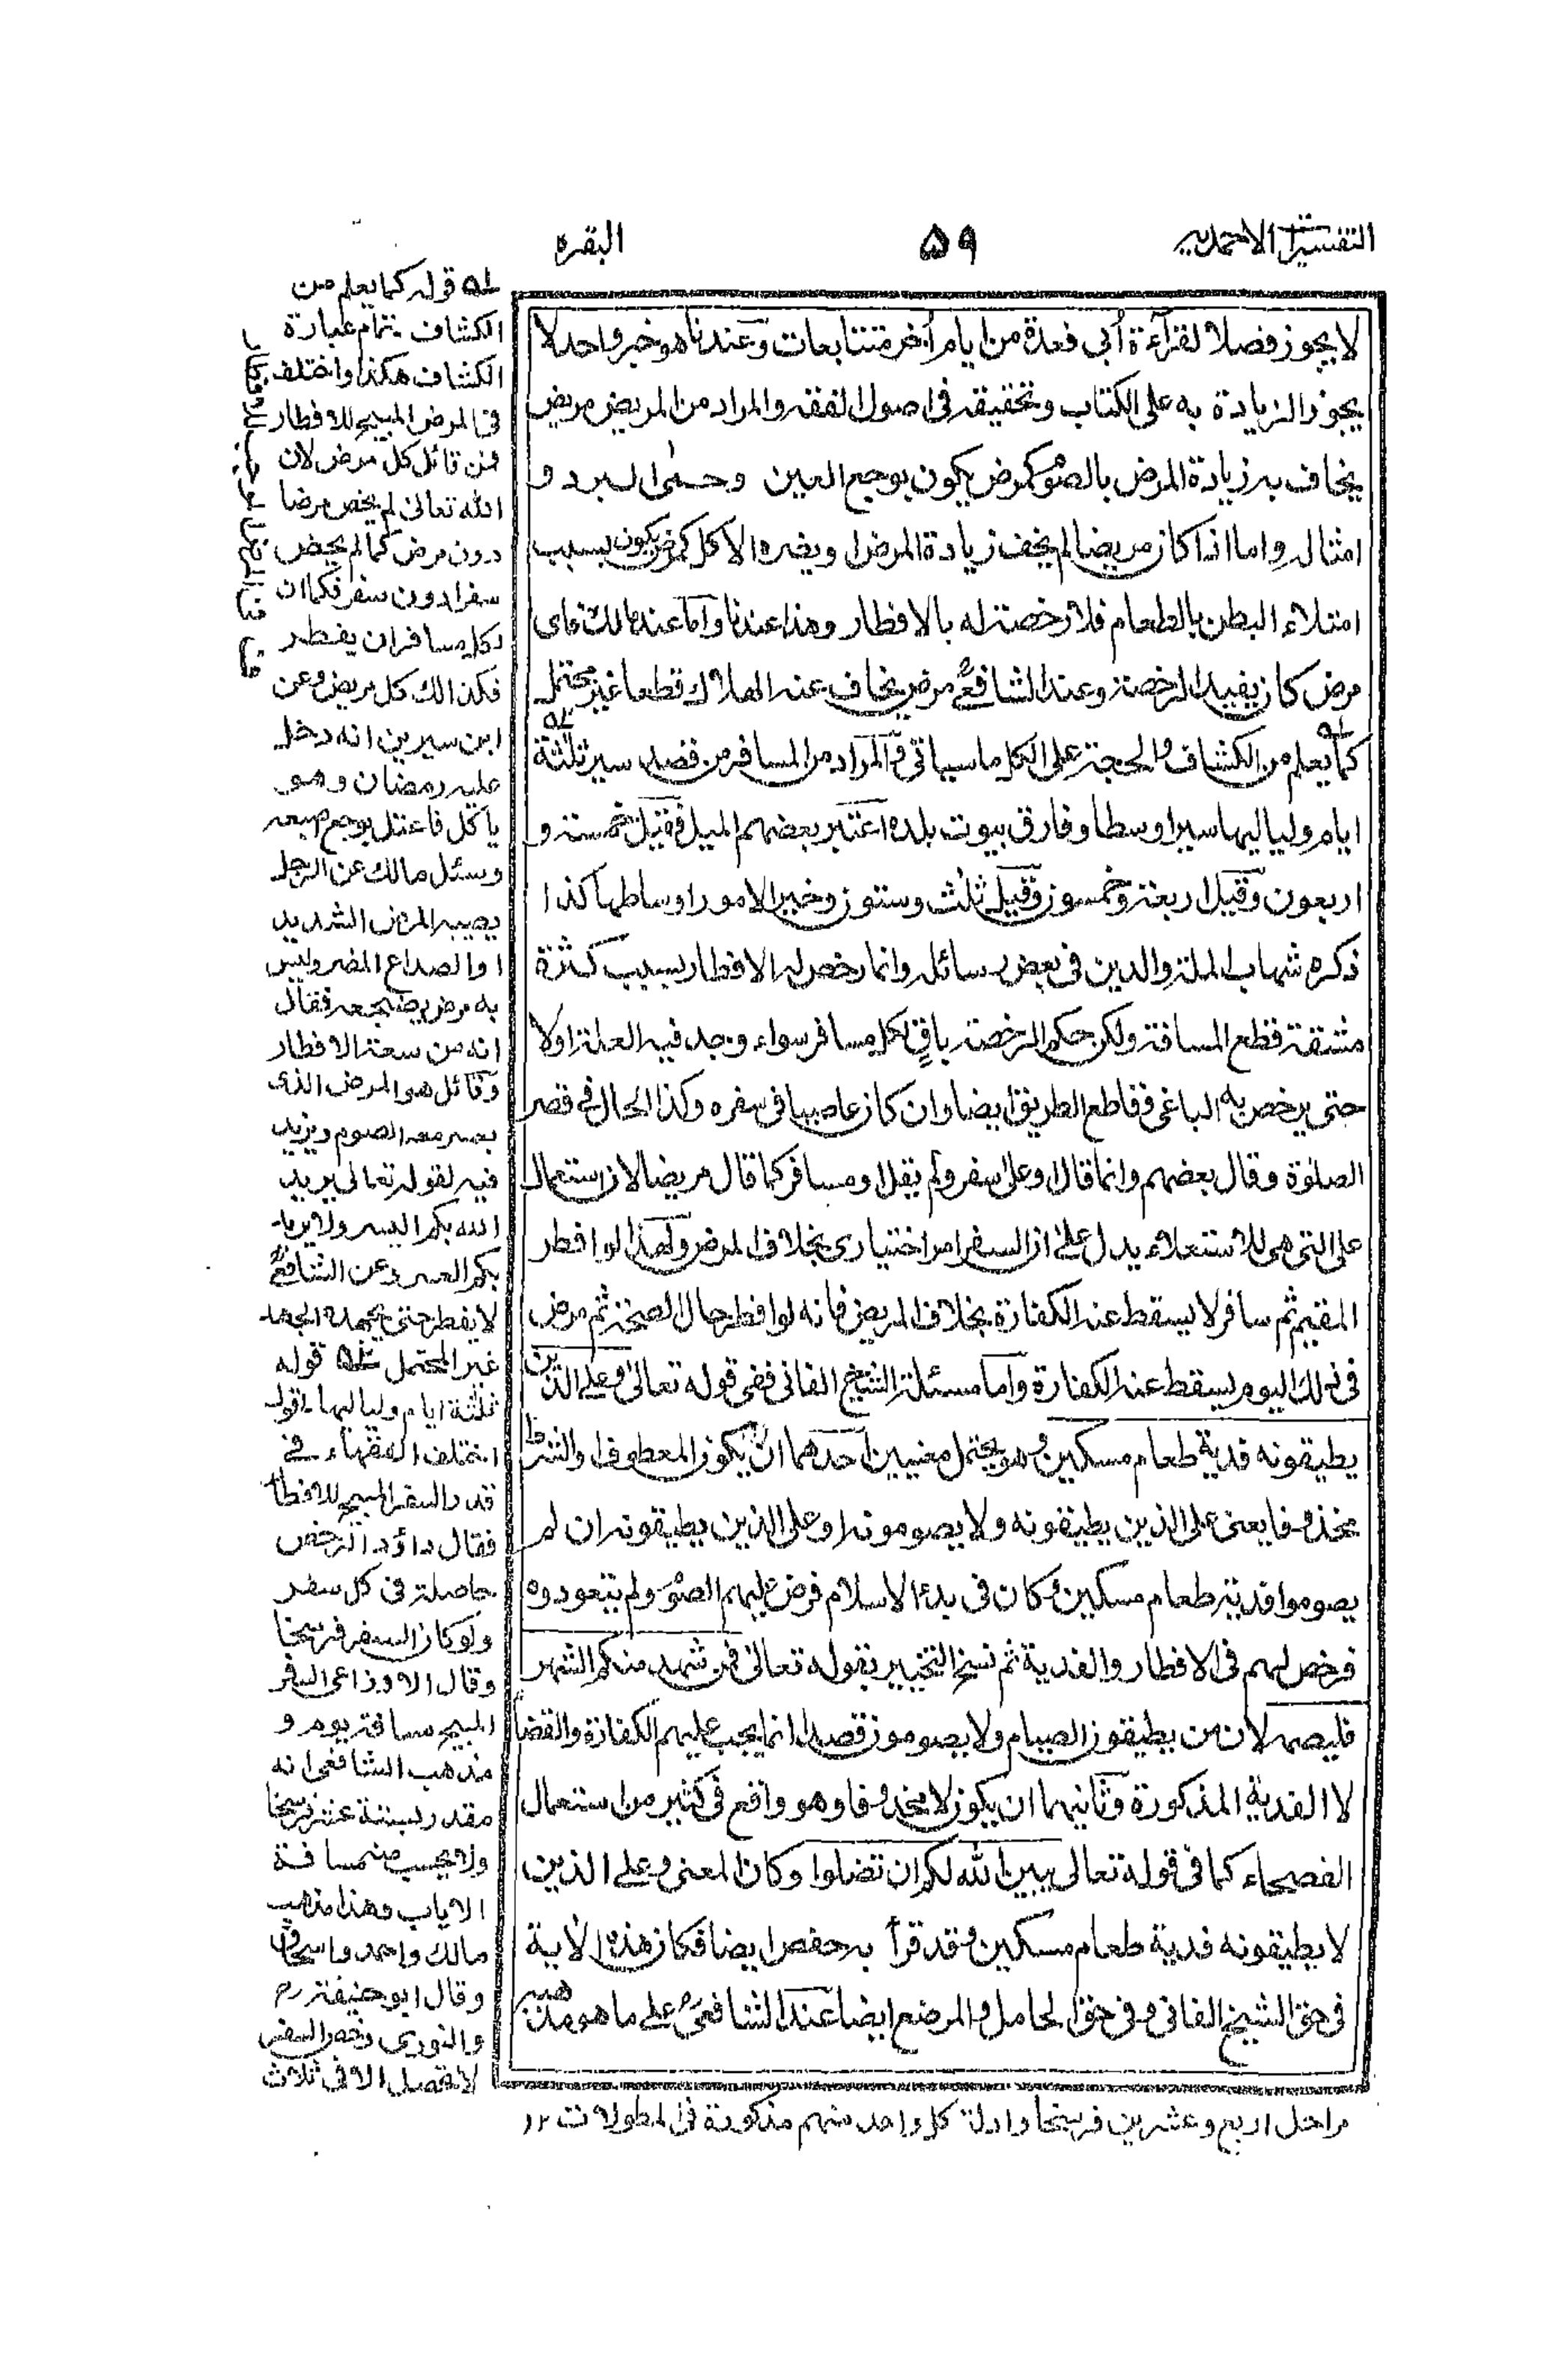 التفسيرات الاحمدیہ ۵۹ البقرہ
لا يجوز فصلا لقراءة أبى فعدة من ايام أخر متتابعات وعندنا هو خبر واحد لا
يجوز الزيادة به على الكتاب وتحقيقه فى اصول الفقه والمراد من المريض مريض
يخاف به زيادة المرض بالصوم كمرض يكون بوجع العين وحمى البرد و
امثاله واما اذا كان مريضا لم يخف زيادة المرض ويضره الاكل كمرض يكون بسبب
امتلاء البطن بالطعام فلا رخصة له بالافطار وهذا عندنا واما عند مالك فاى
مرض كان يفيد الرخصة وعند الشافعى مرض يخاف عنه الهلاك قطعا غير محتمل
كما يعلم من الكشاف والحجة على الكل ما سياتى والمراد من المسافر من قصد سير ثلثة
ايام ولياليها سيرا وسطا وفارق بيوت بلده اعتبر بعضهم الميل فقيل خمسة و
اربعون وقيل اربعة وخمسون وقيل ثلث وستون وخير الامور اوساطها كذا
ذكره شهاب الملة والدين فى بعض رسائله وانما رخص له الافطار بسبب كثرة
مشقة قطع المسافة ولكن حكم الرخصة باق لكل مسافر سواء وجد فيه العلة اولا
حتى يرخص به الباغى وقاطع الطريق ايضا وان كان عاصيا فى سفره وكذا الحال فى قصر
الصلوة وقال بعضهم وانما قال او على سفر ولم يقل او مسافر كما قال مريضا لان استعمال
على التى هى للاستعلاء يدل على ان السفر امر اختيارى بخلاف المرض ولهذا لو افطر
المقيم ثم سافر لا يسقط عنه الكفارة بخلاف المريض فانه لو افطر حال الصحة ثم مرض
فى ذلك اليوم يسقط عنه الكفارة واما مسئلة الشيخ الفانى ففى قوله تعالى وعلى الذين
يطيقونه فدية طعام مسكين وهو يحتمل معنيين احدهما ان يكون المعطوف او الشرط
محذوفا يعنى على الذين يطيقونه ولا يصومونه او على الذين يطيقونه ان لم
يصوموا فدية طعام مسكين وكان فى بدء الاسلام فرض عليهم الصوم ولم يتعودوه
فرخص لهم فى الافطار والفدية ثم نسخ التخيير بقوله تعالى فمن شهد منكم الشهر
فليصمه لان من يطيقون الصيام ولا يصومون قصدا انما يجب عليهم الكفارة والقضا
لا الفدية المذكورة وثانيهما ان يكون لا محذوفا وهو واقع فى كثير من استعمال
الفصحاء كما فى قوله تعالى يبين الله لكم ان تضلوا وكان المعنى وعلى الذين
لا يطيقونه فدية طعام مسكين وقد قرأ به حفص ايضا فكان هذه الاية
فى حق الشيخ الفانى وفى حق الحامل والمرضع ايضا عند الشافعى على ما هو مذهبه
۱ه قوله كما يعلم من
الكشاف تمام عبارة
الكشاف هكذا واختلف
فى المرض المبيح للافطار
فمن قائل كل مرض لان
الله تعالى لم يخص مرضا
دون مرض كما لم يخص
سفرا دون سفر فكما ان
لكل مسافر ان يفطر
فكذالك كل مريض وعن
ابن سيرين انه دخل
عليه رمضان وهو
يأكل فاعتل بوجع اصبعه
وسئل مالك عن الرجل
يصيبه المرض الشديد
او الصداع المضر وليس
به مرض يضجعه فقال
انه من سعة الافطار
وقائل هو المرض الذى
يعسر معه الصوم ويزيد
فيه لقوله تعالى يريد
الله بكم اليسر ولا يريد
بكم العسر وعن الشافعى
لا يفطر حتى يجهده الجهد
غير المحتمل ۲ه قوله
ثلثة ايام ولياليها اقول
اختلف الفقهاء فى
قدر السفر المبيح للافطا
فقال داؤد الرخص
حاصلة فى كل سفر
ولو كان السفر فرسخا
وقال الاوزاعى السفر
المبيح مسافة يوم و
مذهب الشافعى انه
مقدر بستة عشر فرسخا
ولا يحسب منه مسافة
الاياب وهذا مذهب
مالك واحمد واسحاق
وقال ابو حنيفة رح
والثورى رخص السفر
لا تحصل الا فى ثلاث
مراحل اربع وعشرين فرسخا وادلة كل واحد منهم مذكورة فى المطولات ۱۲